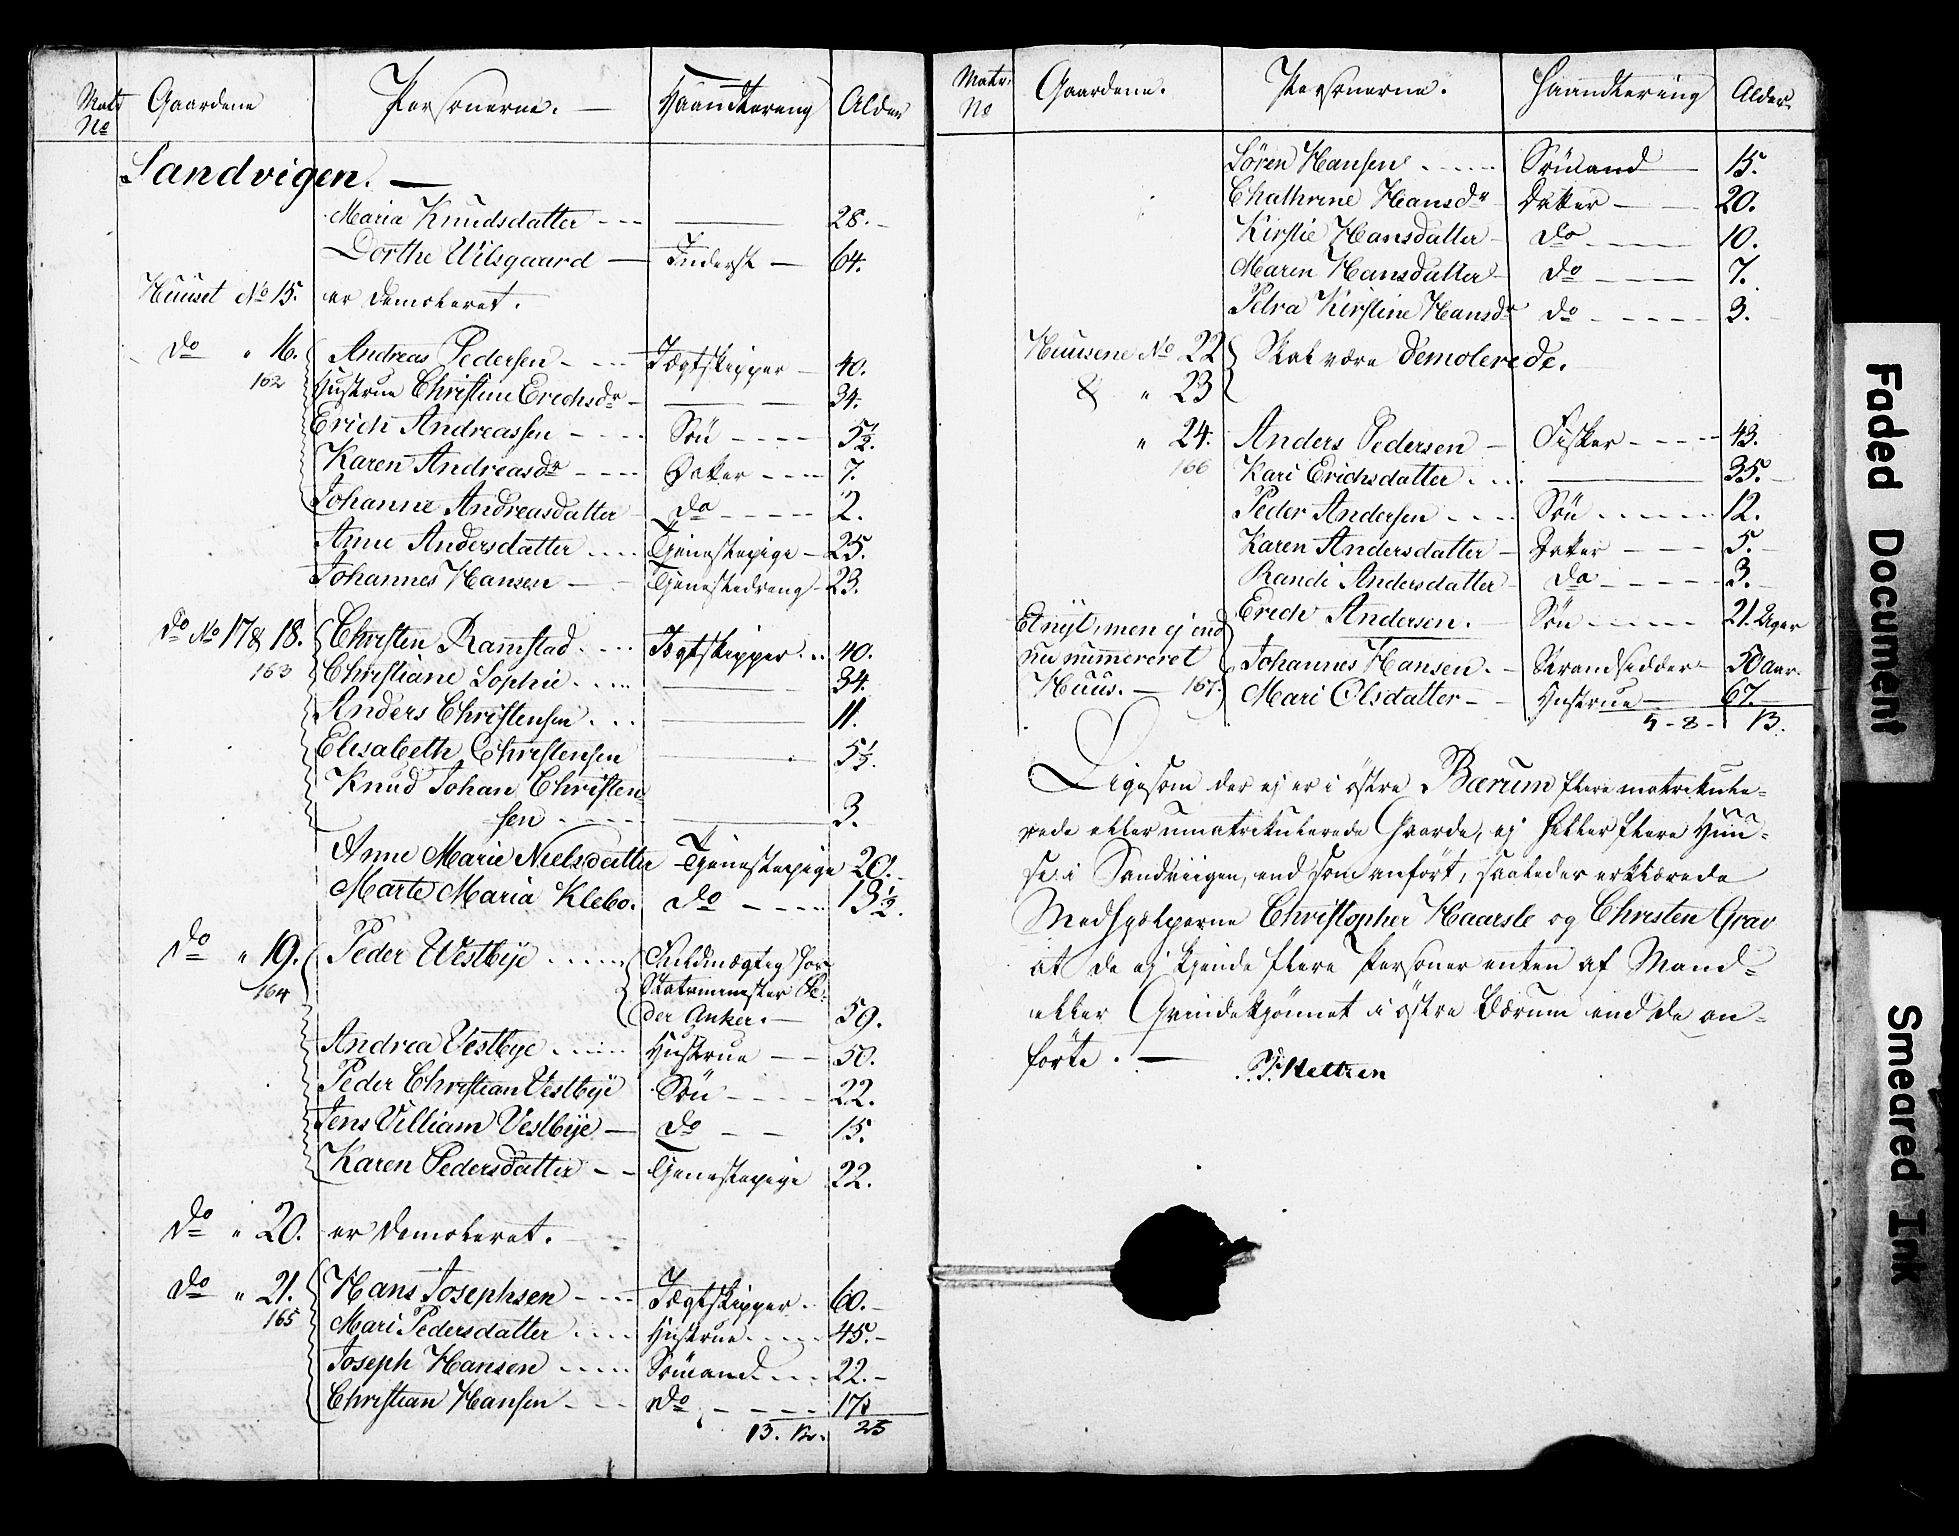 Matr No Gaardene Personerne. Haandtering Alder
Sandvigen.
Maria Knudsdatter 28.
Dorthe Wilsgaard Inderst 64.
Huuset No 15. er demoleret.
do " 16. Andreas Pedersen Jægtskipper 40.
162 Hustrue Christine Erichsdr 34.
Erich Andreassen Søn 5 1/2.
Karen Andreasdr Datter 7.
Johanne Andreasdatter do 2.
Anne Andersdatter Tjenestepige 25.
Johannes Hansen Tjenestedreng 23.
do No 17 & 18. Christen Ramstad Jægtskipper 40.
163 Christiane Sophie 34.
Anders Christensen 11.
Elisabeth Christensen 5 1/2.
Knud Johan Christen
sen 3.
Anne Marie Nielsdatter Tjenestepige 20.
Marte Maria Klebo. do 13 1/2.
do " 19. Peder Westbye Fuldmægtig for
164 Statsminister Pe-
der Anker. 59.
Andrea Vestbye Hustrue 50.
Peder Christian Vestbye Søn 22.
Jens Villiam Vestbye do 15.
Karen Pedersdatter Tjenestepige 22.
do " 20. er demoleret.
do " 21. Hans Josephsen Jægtskipper 60.
165 Mari Pedersdatter Hustrue 45.
Joseph Hansen Sømand 22.
Christian Hansen do 17
13. 12. 25
Matr. No Gaardene. Personerne. Haandtering Alder.
Søren Hansen Sømand 15.
Chathrine Hansdr Datter 20.
Kirstie Hansdatter do 10.
Maren Hansdatter do 7.
Petra Kirstine Hansdr do 3.
Huusene No 22 Skal være demolerede.
& " 23
" 24. Anders Pedersen Fisker 43.
166 Kari Erichsdatter 35.
Peder Andersen Søn 12.
Karen Andersdatter Datter 5.
Randi Andersdatter do 3.
Erich Andersen. Søn 21. Uger
Et nyt, men ej end
nu nummereret Johannes Hansen. Strandsidder 50 aar.
Huus. 167. Mari Olsdatter Hustrue 67.
5-8- 13.
Ligesom der ej er i østre Bærum flere matrikule-
rede eller umatrikulerede Gaarde, ej heller flere Huu-
se i Sandviigen, end som anført, saaledes erklærede
Medhjælperne Christopher Haarsle og Christen Grav
at de ej kjende flere Personer enten af Mand-
eller Qvindekjønnet i østre Bærum end de an-
førte.
Heltzen
Faded Document
Smeared Ink